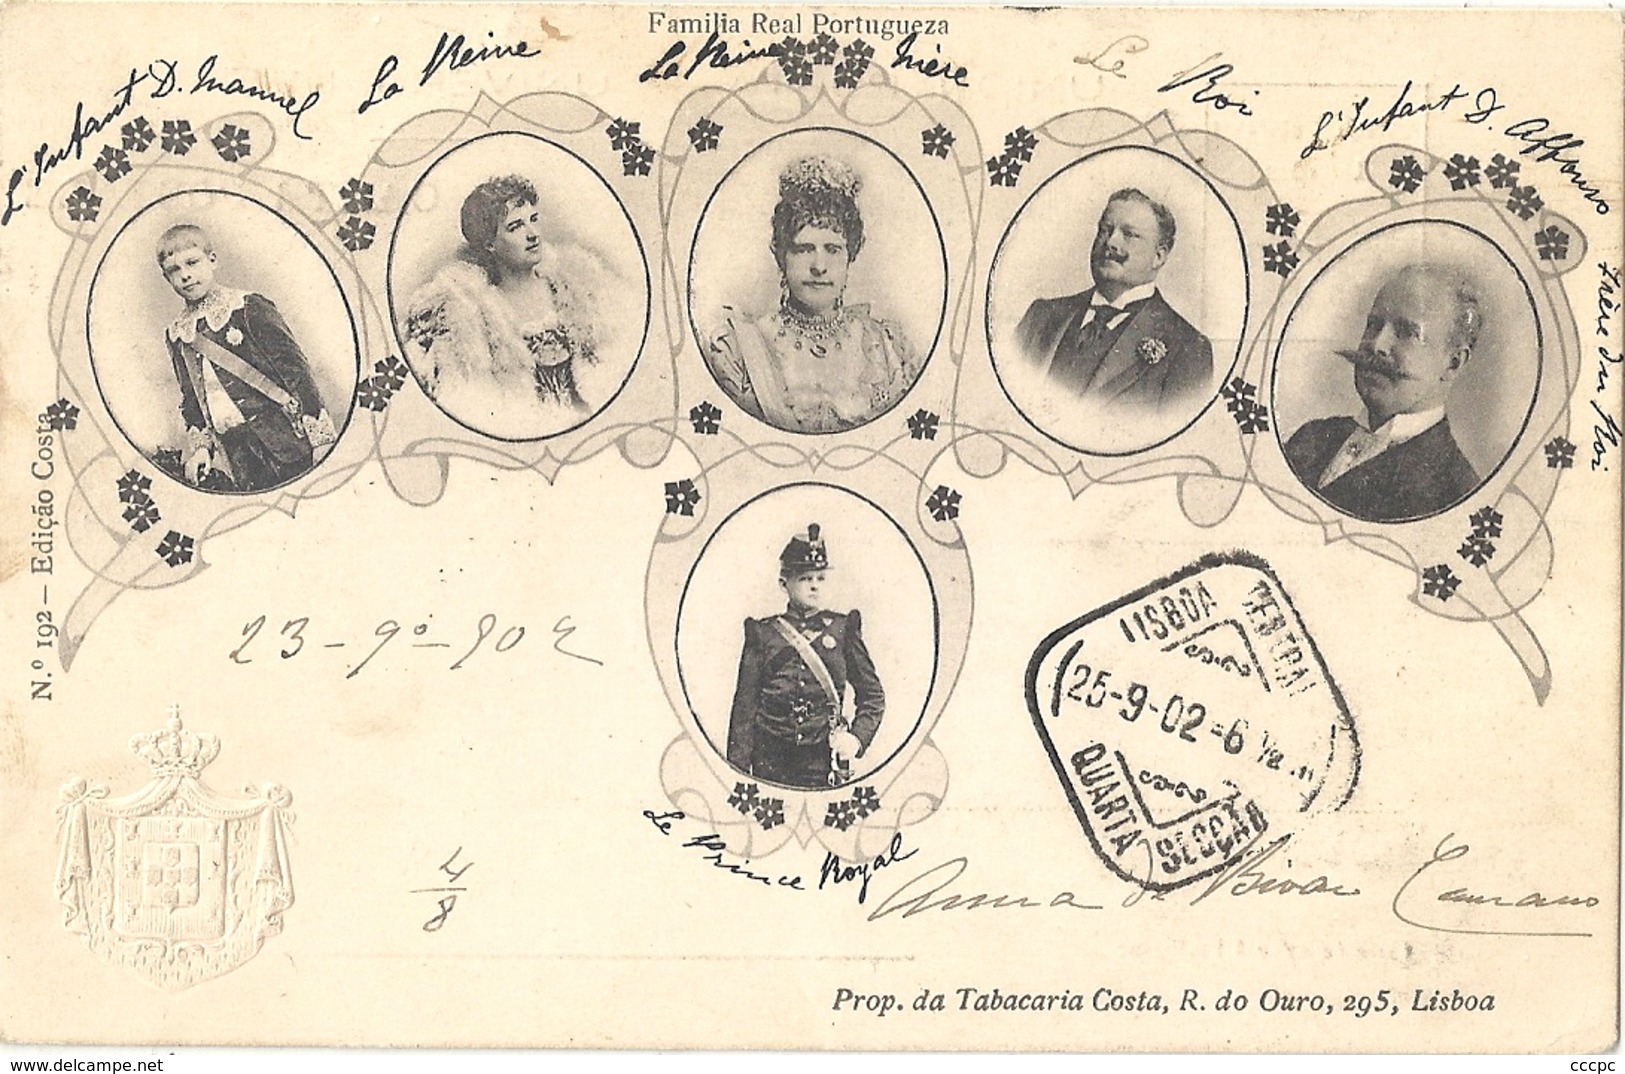 Familia Real Portugueza
L'Infant D. Manuel
La Reine
La Reine Mère
Le Roi
L'Infant D. Affonso
frère du Roi
N.º 192 — Edição Costa
23-9º-902
LISBOA CENTRAL
25-9-02 = 6
QUARTA SECÇÃO
Le Prince Royal
4/8
Anna de Bivar
Prop. da Tabacaria Costa, R. do Ouro, 295, Lisboa
cccpc